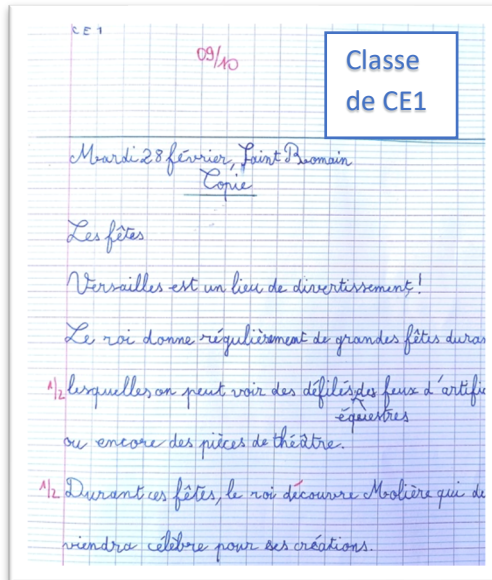 CE1
09/10
Classe
de CE1
Mardi 28 février, Saint Romain
Copie
Les fêtes
Versailles est un lieu de divertissement !
Le roi donne régulièrement de grandes fêtes duran
1/2 lesquelles on peut voir des défilés, des feux d'artifi
équestres
ou encore des pièces de théâtre.
1/2 Durant ces fêtes, le roi découvre Molière qui de
viendra célèbre pour ses créations.